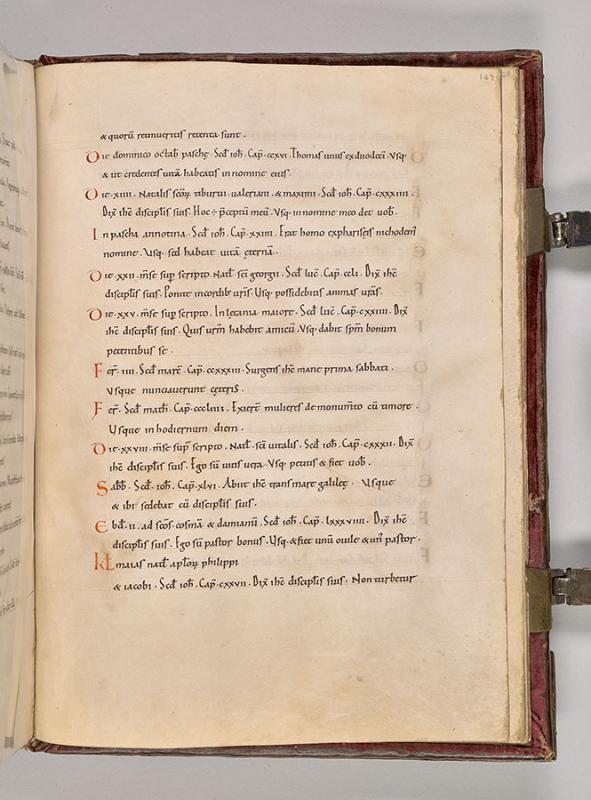 & quorū retinueritis retenta sunt.
Die dominico octab̄ pasche. Scđ ioh̄. Cap̄. ccxvi. Thomas unus ex duodecī. Usq
& ut credentes uitā habeatis in nomine eius.
Die. xiiii. Natalis scōꝝ tiburtii. ualeriani. & maximi. Scđ ioh̄. Cap̄. cxxxiiii.
Dix̄ ihc̄ discipl̄is suis. Hoc ÷ p̄ceptū meū. Usq. in nomine meo det uob̄.
In pascha annotina. Scđ ioh̄. Cap̄. xxiiii. Erat homo ex phariseis nichodem̄
nomine. Usq. sed habeat uitā eternā.
Die. xxii. m̄se sup̄ scripto. Natl̄ scī georgii. Scđ luc̄. Cap̄. ccli. Dix̄ ihc̄
discipl̄is suis. Ponite in cordib; ur̄is. Usq. possidebitis animas ur̄as.
Die. xxv. m̄se sup̄ scripto. In letania maiore. Scđ luc̄. Cap̄. cxxiiii. Dix̄
ihc̄ discipl̄is suis. Quis ur̄m habebit amicū. Usq. dabit sp̄m bonum
petentibus se.
Fer̄. iiii. Scđ marc̄. Cap̄. ccxxxiii. Surgens ihc̄ mane prima sabbati.
Usque nunciauerunt ceteris.
Fer̄. Scđ math̄. Cap̄. Exier̄ mulieres de monum̄to cū timore.
Usque in hodiernum diem.
Die. xxviii. m̄se sup̄ scripto. Natl̄. scī uitalis. Scđ ioh̄. Cap̄. cxxxii. Dix̄
ihc̄ discipl̄is suis. Ego sū uitis uera. Usq. petitis & fiet uob̄.
Sabb̄. Scđ. ioh̄. Cap̄. xlvi. Abiit ihc̄ trans mare galilee. Usque
& ibi sedebat cū discipl̄is suis.
Ebd̄. ii. ad scōs cosmā & damianū. Scđ ioh̄. Cap̄. lxxxviiii. Dix̄ ihc̄
discipl̄is suis. Ego sū pastor bonus. Usq. & fiet unū ouile & un̄ pastor.
kl̄ maias natl̄ apl̄oꝝ philippi
& iacobi. Scđ ioh̄. Cap̄. cxxvii. Dix̄ ihc̄ discipl̄is suis. Non turbetur